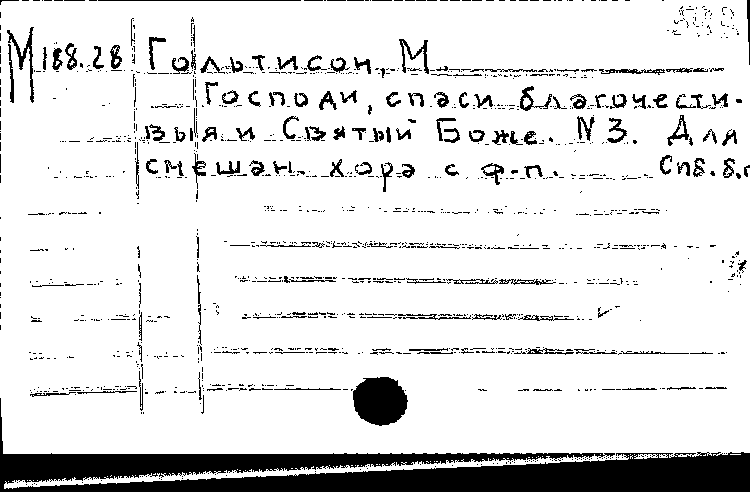 М 188.28 Гольтисон, М.
Господи, спаси благочести-
выя и Святый Боже. N 3. Для
смешан. хора с ф-п. Спб. б.г